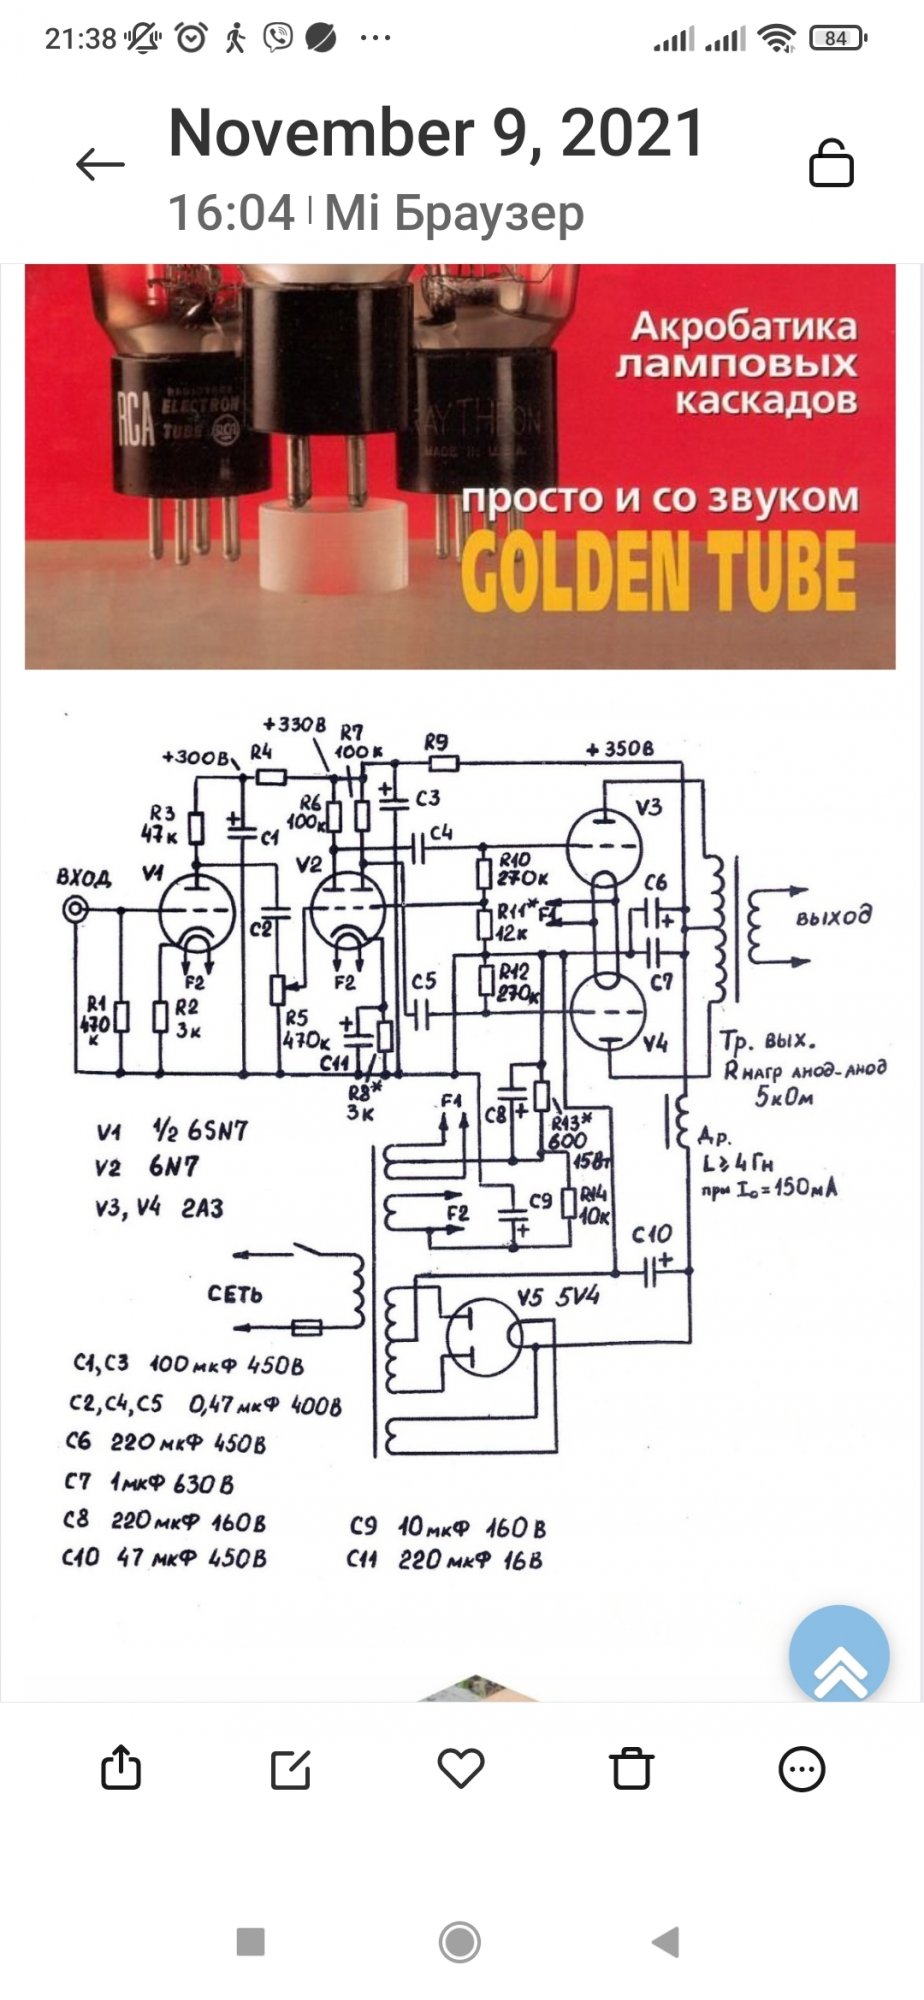 21:38
84
November 9, 2021
16:04 | Mi Браузер
Акробатика
ламповых
каскадов
RCA
ELECTRON
TUBE RCA
RAYTHEON
MADE IN U.S.A.
просто и со звуком
GOLDEN TUBE
+330В
R7
100к
+300В
R4
R9
+350В
R3
47к
C1
R6
100к
C3
C4
V3
ВХОД
V1
V2
R10
270к
C6
C2
R11*
F1
12к
ВЫХОД
F2
F2
C5
R12
270к
C7
R1
470
к
R2
3к
R5
470к
C11
V4
Тр. вых.
Rнагр анод-анод
5кОм
R8*
3к
F1
C8
R13*
600
15Вт
Др.
L≥4Гн
при I₀=150мА
V1 ½ 6SN7
V2 6N7
V3, V4 2A3
F2
C9
R14
10к
C10
СЕТЬ
V5 5V4
C1, C3 100мкФ 450В
C2, C4, C5 0,47мкФ 400В
C6 220мкФ 450В
C7 1мкФ 630В
C8 220мкФ 160В
C9 10мкФ 160В
C10 47мкФ 450В
C11 220мкФ 16В